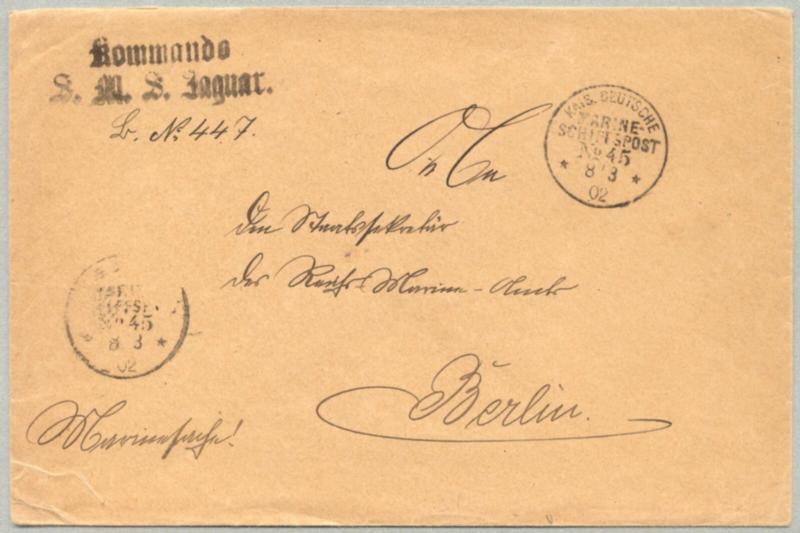 Kommando
S. M. S. Jaguar.
B. No 447.
KAIS. DEUTSCHE
MARINE-
SCHIFFSPOST
No 45
* 8/3 *
02
An
Den Staatssekretär
des Reichs-Marine-Amts
No 45
* 8/3 *
02
Berlin.
Marinesache!